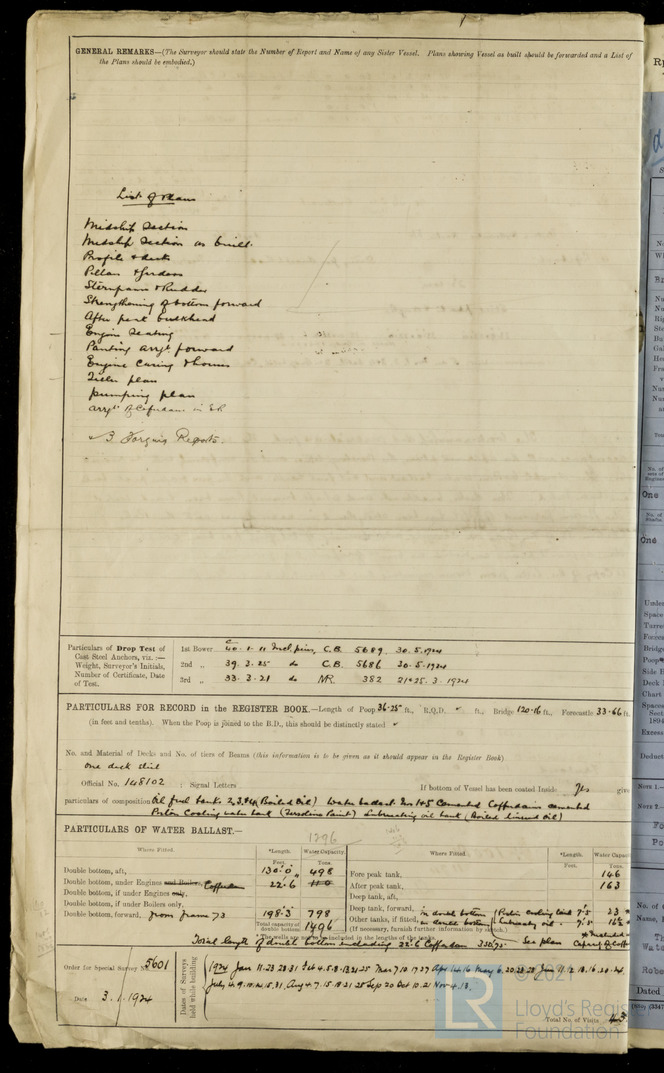 GENERAL REMARKS—(The Surveyor should state the Number of Report and Name of any Sister Vessel. Plans showing Vessel as built should be forwarded and a List of
the Plans should be embodied.)
List of Plans
Midship Section
Midship Section as built.
Profile & decks
Pillars & girders
Sternframe & Rudder
Strengthening of bottom forward
After peak bulkhead
Engine Seating
Panting arrgt forward
Engine Casing & houses
Tiller plan
pumping plan
arrgt of Cofferdam in E.R.
3 Forging Reports.
Particulars of Drop Test of
Cast Steel Anchors, viz.:—
Weight, Surveyor's Initials,
Number of Certificate, Date
of Test.
1st Bower 40.1.11 Incl. pins, C.B. 5689 30.5.1924
2nd „ 39.3.25 do C.B. 5686 30.5.1924
3rd „ 33.3.21 do 382 25.3.1924
PARTICULARS FOR RECORD in the REGISTER BOOK.—Length of Poop 36.25 ft., R.Q.D. ft., Bridge 120.16 ft., Forecastle 33.66 ft.
(in feet and tenths). When the Poop is joined to the B.D., this should be distinctly stated
No. and Material of Decks and No. of tiers of Beams (this information is to be given as it should appear in the Register Book)
One deck steel
Official No. 148102 ; Signal Letters If bottom of Vessel has been coated Inside Yes give
particulars of composition Oil fuel tanks 2, 3, & 4 (Boiled Oil) Water ballast Nos 1 & 5 Cemented Cofferdams cemented
Piston Cooling water tank (Ferroline Paint) Lubricating oil tank (Boiled linseed Oil)
PARTICULARS OF WATER BALLAST.—
1296
Where Fitted. *Length. Water Capacity. Where Fitted. *Length. Water Capaci
Feet. Tons. Feet. Tons.
Double bottom, aft, 130.0 498 Fore peak tank, 146
Double bottom, under Engines and Boilers, Cofferdam 22.6 After peak tank, 163
Double bottom, if under Engines only, Deep tank, aft,
Double bottom, if under Boilers only, Deep tank, forward, in double bottom (Piston cooling tank 7.5 23
Double bottom, forward, from frame 73 198.3 798 Other tanks, if fitted, in double bottom lubricating oil 7.5 16½
Total capacity of double bottom 1496 (If necessary, furnish further information by sketch.)
* The wells are not to be included in the lengths of the tanks.
Total length of double bottom including 22.6 Cofferdam 350.75. See plan
Order for Special Survey No. 5601
Date 3.1.1924
Dates of Surveys
held while building
1924 Jan 11.23.28.31 Feb 4.5.8.13.21.25 Mar 7.10.17.27 Apr 1.4.16 May 6.20.23.28 Jun 11.12.18.16.20.24
July 4.9.10.14.15.31, Aug 4.7.15.18.21.25 Sep 20 Oct 10.21 Nov 4.13.
Total No. of Visits 43
LR
© 2021
Lloyd's Regis
Foundation
One
One
Nos.
Dated